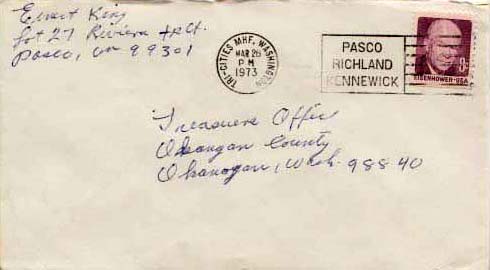 Ernest King
Lot 27 Riviera
Pasco, Wn 99301
TRI-CITIES MHF, WASHINGTON
MAR 26
PM
1973
PASCO
RICHLAND
KENNEWICK
EISENHOWER·USA
Treasurers Office
Okanogan County
Okanogan, Wash. 98840